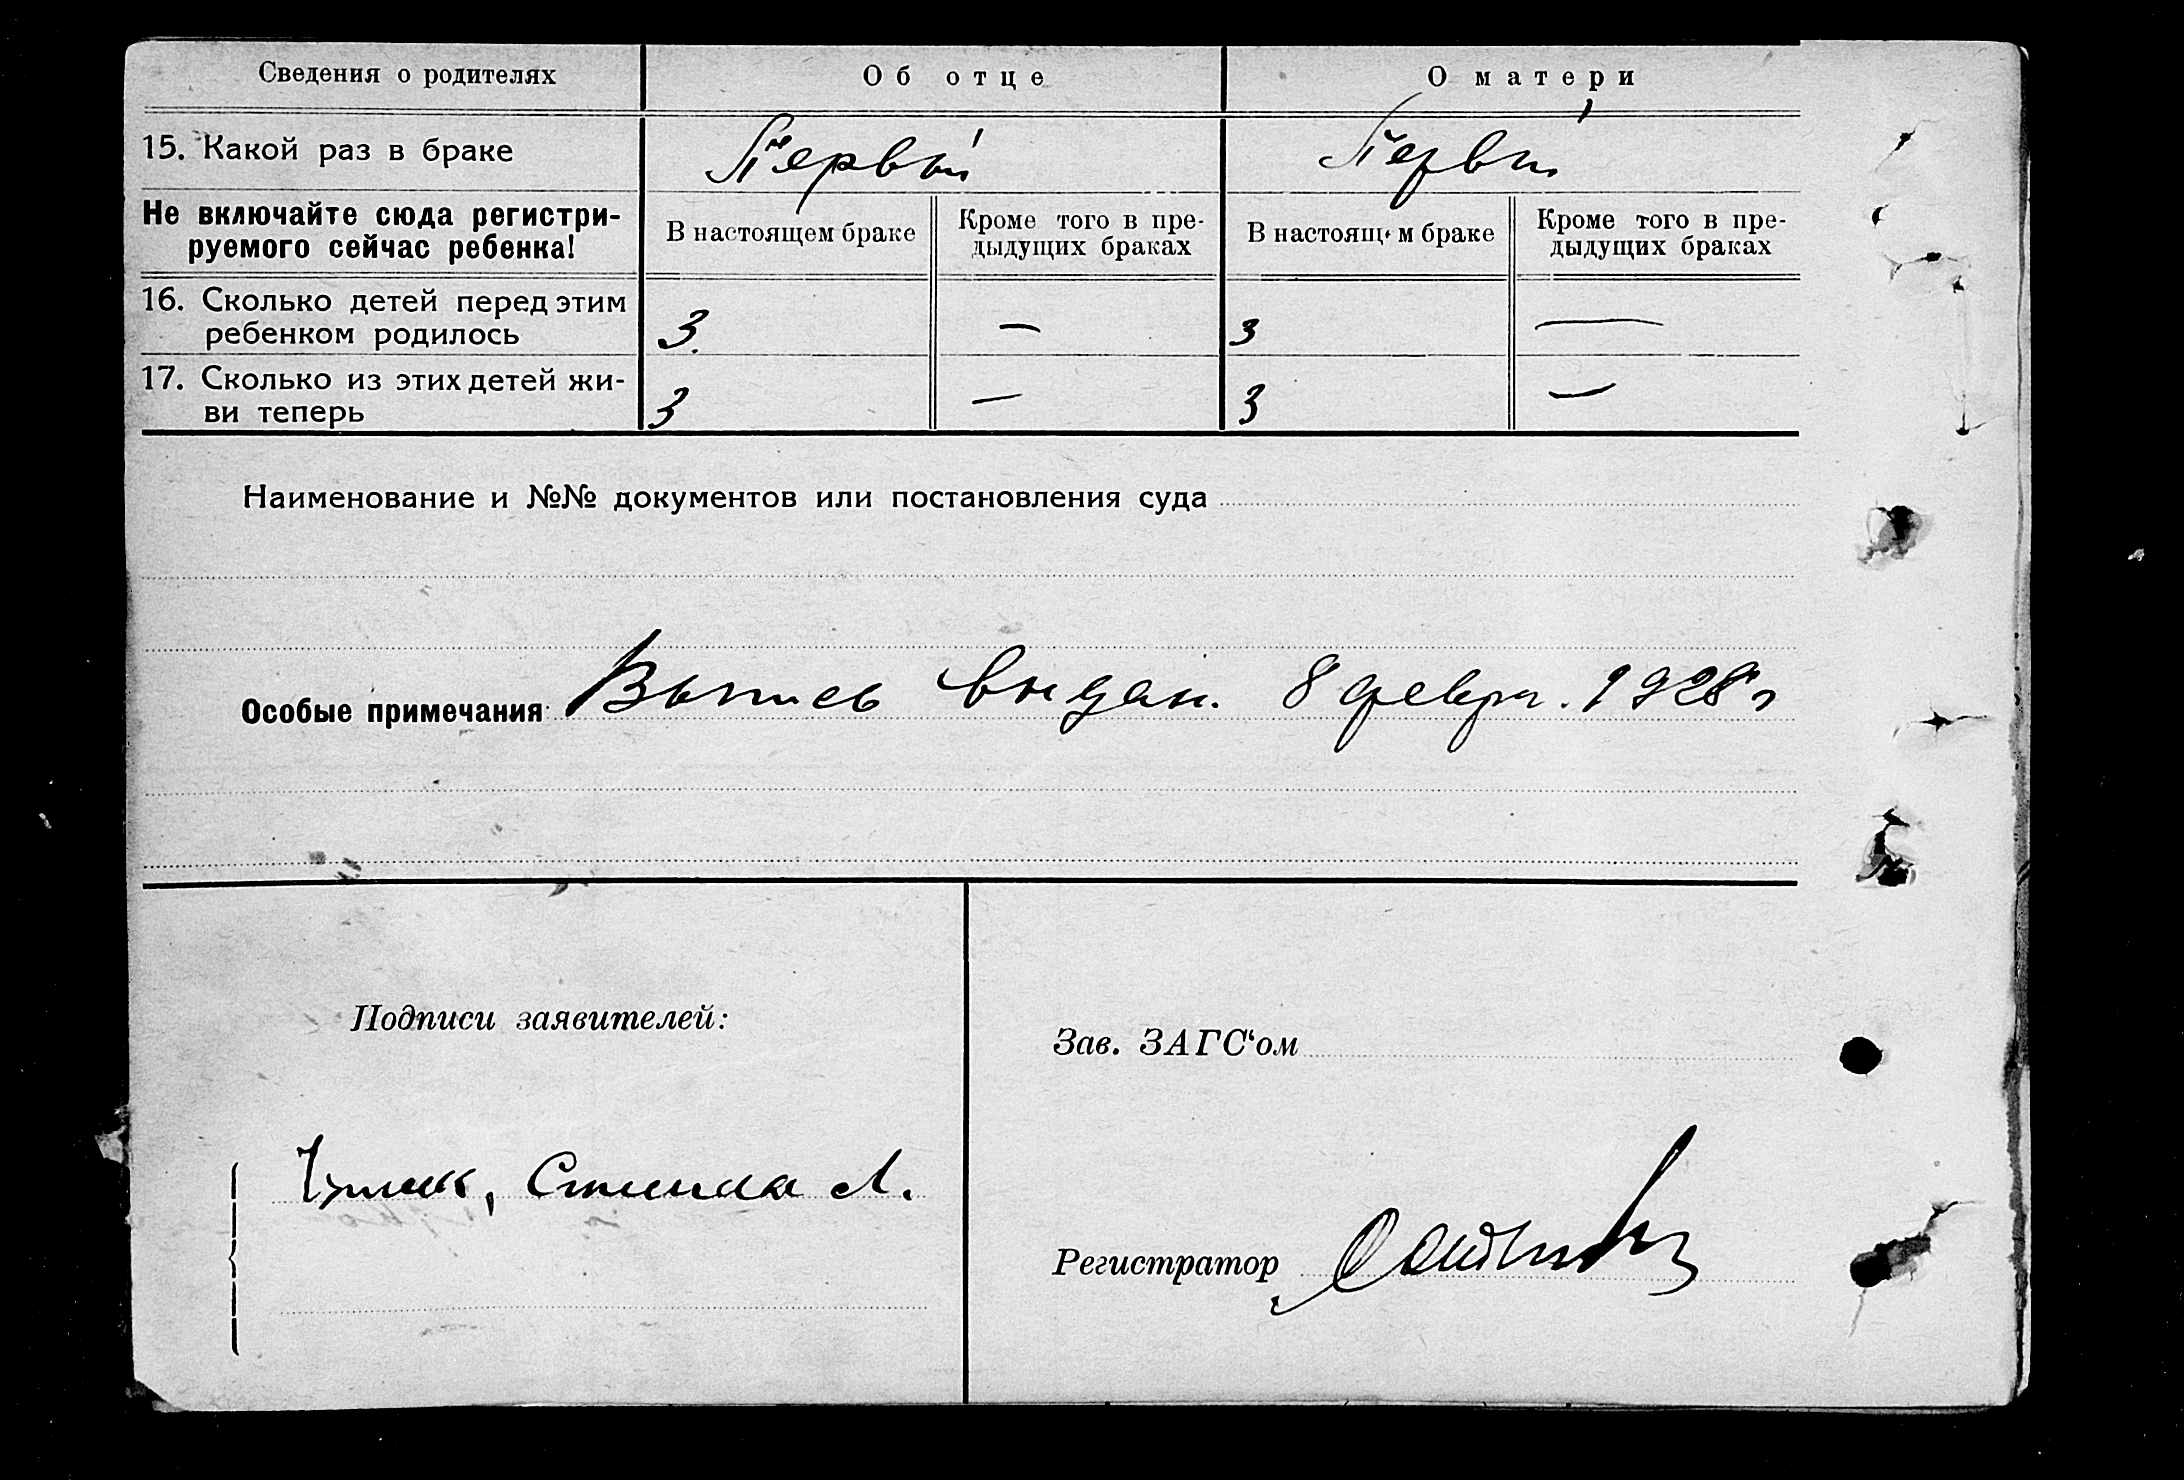 Сведения о родителях Об отце О матери
15. Какой раз в браке Первый Первый
Не включайте сюда регистри-
руемого сейчас ребенка!
В настоящем браке Кроме того в пре-
дыдущих браках
В настоящем браке Кроме того в пре-
дыдущих браках
16. Сколько детей перед этим
ребенком родилось 3. — 3 —
17. Сколько из этих детей жи-
ви теперь 3 — 3 —
Наименование и №№ документов или постановления суда
Особые примечания: Выпись выдан. 8 февр. 1928 г
Подписи заявителей:
Зав. ЗАГС‘ом
Л.
Регистратор